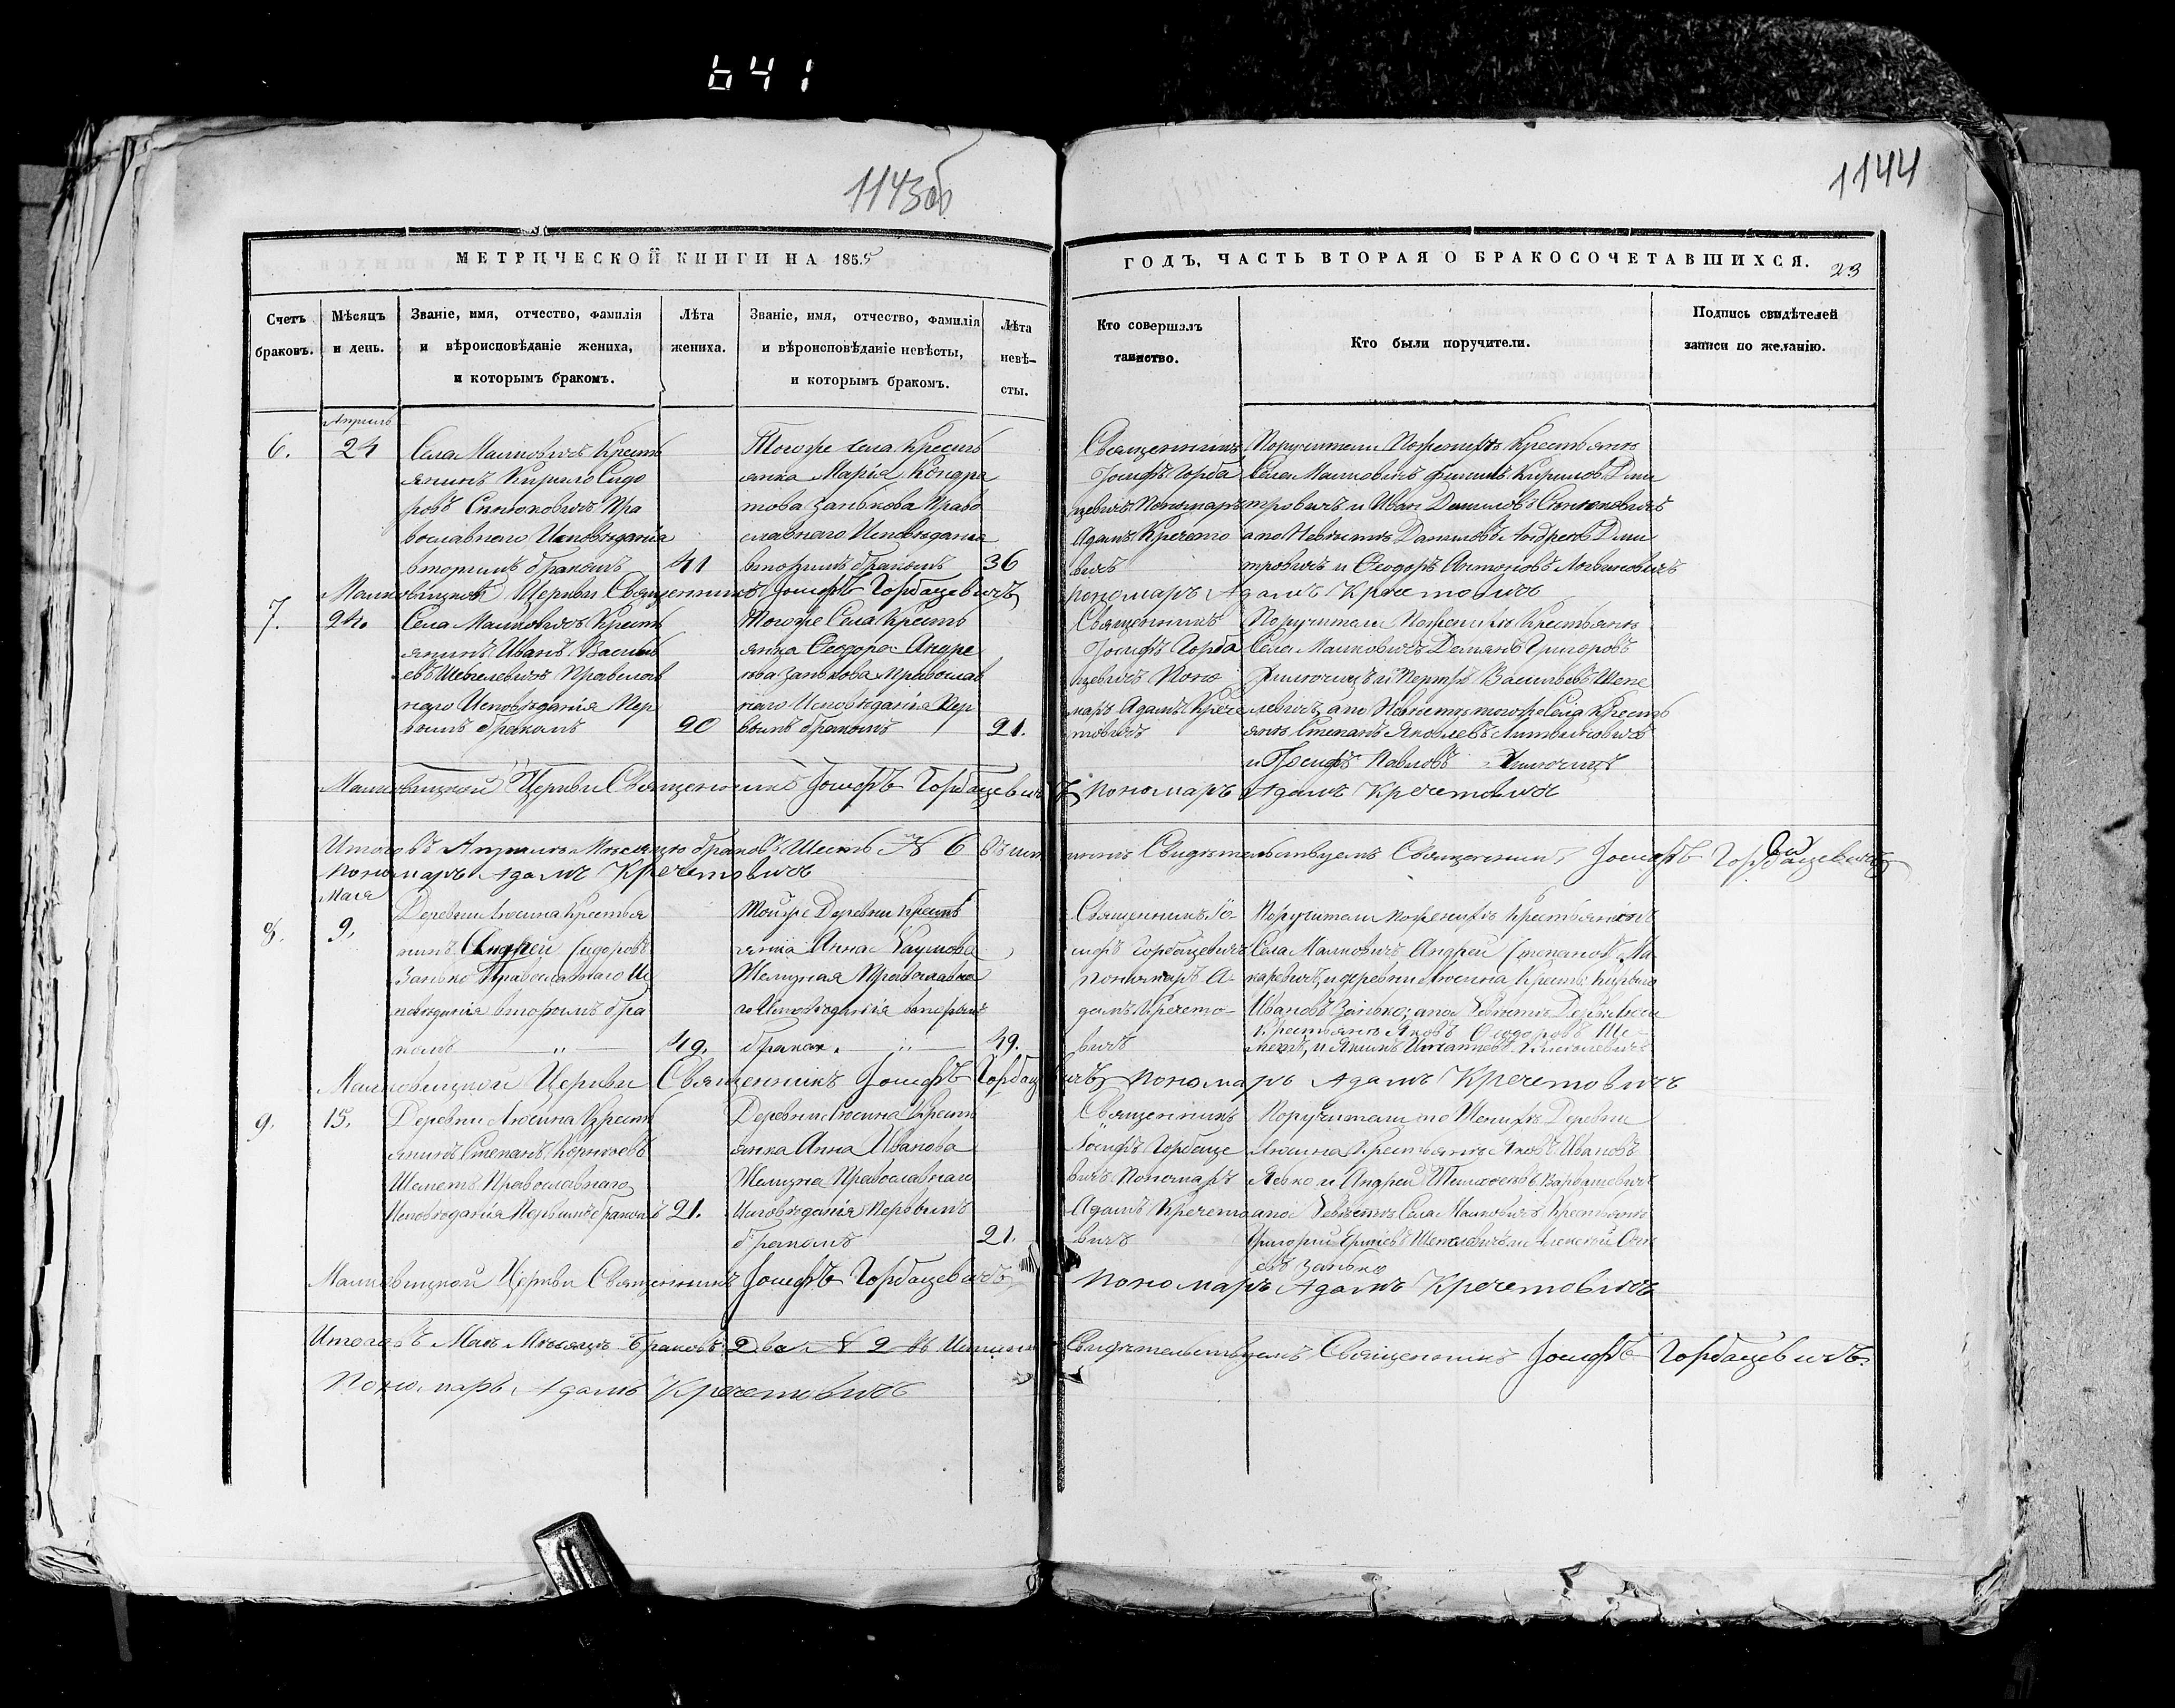 641
1143об
1144
МЕТРИЧЕСКОЙ КНИГИ НА 1855
ГОДЪ, ЧАСТЬ ВТОРАЯ О БРАКОСОЧЕТАВШИХСЯ.
23
Счетъ браковъ.
Мѣсяцъ и день.
Званіе, имя, отчество, фамилія
и вѣроисповѣданіе жениха,
и которымъ бракомъ.
Лѣта жениха.
Званіе, имя, отчество, фамилія
и вѣроисповѣданіе невѣсты,
и которымъ бракомъ.
Лѣта невѣ-
сты.
Кто совершалъ
таинство.
Кто были поручители.
Подпись свидѣтелей
записи по желанію.
Апрѣль
6.
24
Села Малковичъ Кресть
янинъ Кирило Сидо
ровъ Синюковичъ Пра
вославнаго Исповѣданія
вторымъ бракомъ
41
Тогоже села Кресть
янка Марія Кондра
това Занькова Право
славнаго Исповѣданія
вторымъ бракомъ
36
Священникъ
Іосифъ Горба
цевичъ Пономарь
Адамъ Кречето
вичъ
Поручители по женихѣ Крестьяне
Села Малковичъ Кирилов Дми
тровичъ и Иван Данилов
а по Невѣстѣ Даниловъ Андреев Дми
тровичъ и Ѳеодоръ Антоновъ Логвиновичъ
Малковицкой Церкви Священникъ Іосифъ Горбацевичъ
пономарь Адамъ Кречетовичъ
7.
24.
Села Малковичъ Кресть
янинъ Иванъ Василь
евъ Шепелевичъ Православ
наго Исповѣданія Пер
вымъ бракомъ
20
Тогоже Села Кресть
янка Ѳеодора Андре
ева Занькова Православ
наго Исповѣданія Пер
вымъ бракомъ
21.
Священникъ
Іосифъ Горба
цевичъ Поно
марь Адамъ Крече
товичъ
Поручители по женихѣ Крестьяне
Села Малковичъ Демьянъ Григоровъ
и Петръ Васильевъ Шепе
левичъ, а по Невѣстѣ тогоже Села Кресть
яне Степанъ Яковлевъ
и Іосифъ Павловъ
Малковицкой Церкви Священникъ Іосифъ Горбацевичъ Пономарь Адамъ Кречетовичъ
Итого въ Апрѣлѣ Мѣсяцѣ браковъ Шесть № 6 Свидѣтельствуемъ Священникъ Іосифъ Горбацевичъ
Пономарь Адамъ Кречетовичъ
Мая
8.
9.
Деревни Люсина Крестья
нинъ Андрей Сидоровъ
Занько Православнаго Ис
повѣданія вторымъ бра
комъ
49.
Тойже Деревни Кресть
янка Анна Наумова
Шелудкая Православна
го Исповѣданія вторымъ
браком
49.
Священникъ Іо-
сифъ Горбацевичъ
пономарь А-
дамъ Кречето-
вичъ
Поручители по женихѣ
Села Малковичъ Андрей Степановъ Ма
каревичъ, и деревни Люсина Крест. Кирило
Ивановъ Занько; а по Невѣстѣ
Крестьяне Яковъ Ѳеодоровъ Ше-
Малковицкой Церкви Священникъ Іосифъ Горбацевичъ Пономарь Адамъ Кречетовичъ
9.
15.
Деревни Люсина Кресть
янинъ Степанъ Корнѣевъ
Шелегъ Православнаго
Исповѣданія Первымъ бракомъ
21.
Деревни Люсина Кресть
янка Анна Иванова
Православнаго
Исповѣданія Первымъ
бракомъ
21.
Священникъ
Іосифъ Горбаце
вичъ Пономарь
Адамъ Кречето
вичъ
Поручители по Женихѣ Деревни
Люсина Крестьяне Яковъ Ивановъ
Левко и Андрей
а по Невѣстѣ Села Малковичъ Крестьяне
Григорій Шепелевичъ и Алексей
Занько
Малковицкой Церкви Священникъ Іосифъ Горбацевичъ Пономарь Адамъ Кречетовичъ
Итого въ Маѣ Мѣсяцѣ браковъ Два № 2 Свидѣтельствуемъ Священникъ Іосифъ Горбацевичъ.
Пономарь Адамъ Кречетовичъ